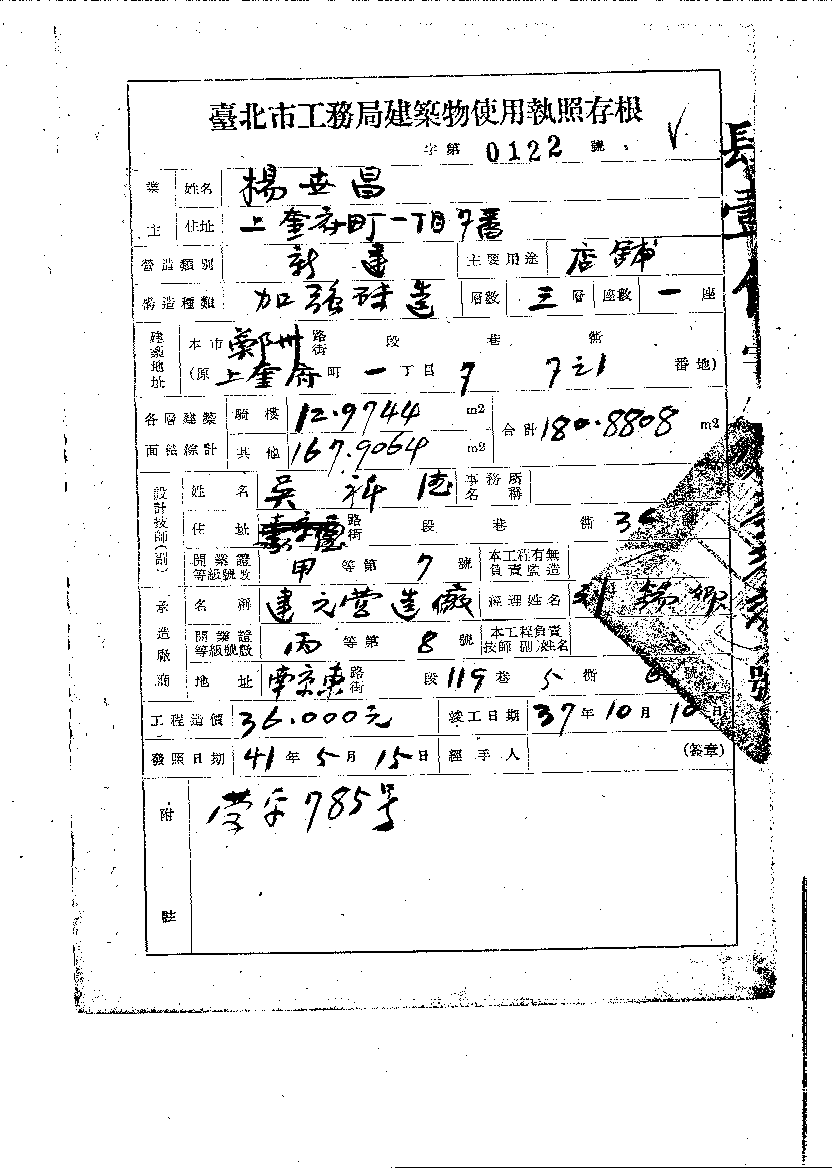 臺北市工務局建築物使用執照存根
字第 0122 號
業主 姓名 楊世昌
住址 上奎府町一丁目7番
營造類別 新建 主要用途 店鋪
營造種類 加強磚造 層數 三層 座數 一座
建築地址 本市 鄭州 路街 段 巷 衖
(原 上奎府町 一丁目 7 7之1 番地)
各層建築面積總計 騎樓 12.9744 m2 合計 180.8808 m2
其他 167.9064 m2
設計技師(副) 姓名 吳科 事務所名稱
住址 路街 段 巷 衖
開業證等級號數 甲等第 7 號 本工程有無負責監造
承造廠商 名稱 建元營造廠 經理姓名
開業證等級號數 丙等第 8 號 本工程負責技師(副)姓名
地址 南京東路街 段 119 巷 5 衖 號
工程造價 36.000元 竣工日期 37年10月10日
發照日期 41年5月15日 經手人 (簽章)
附註 營字785号